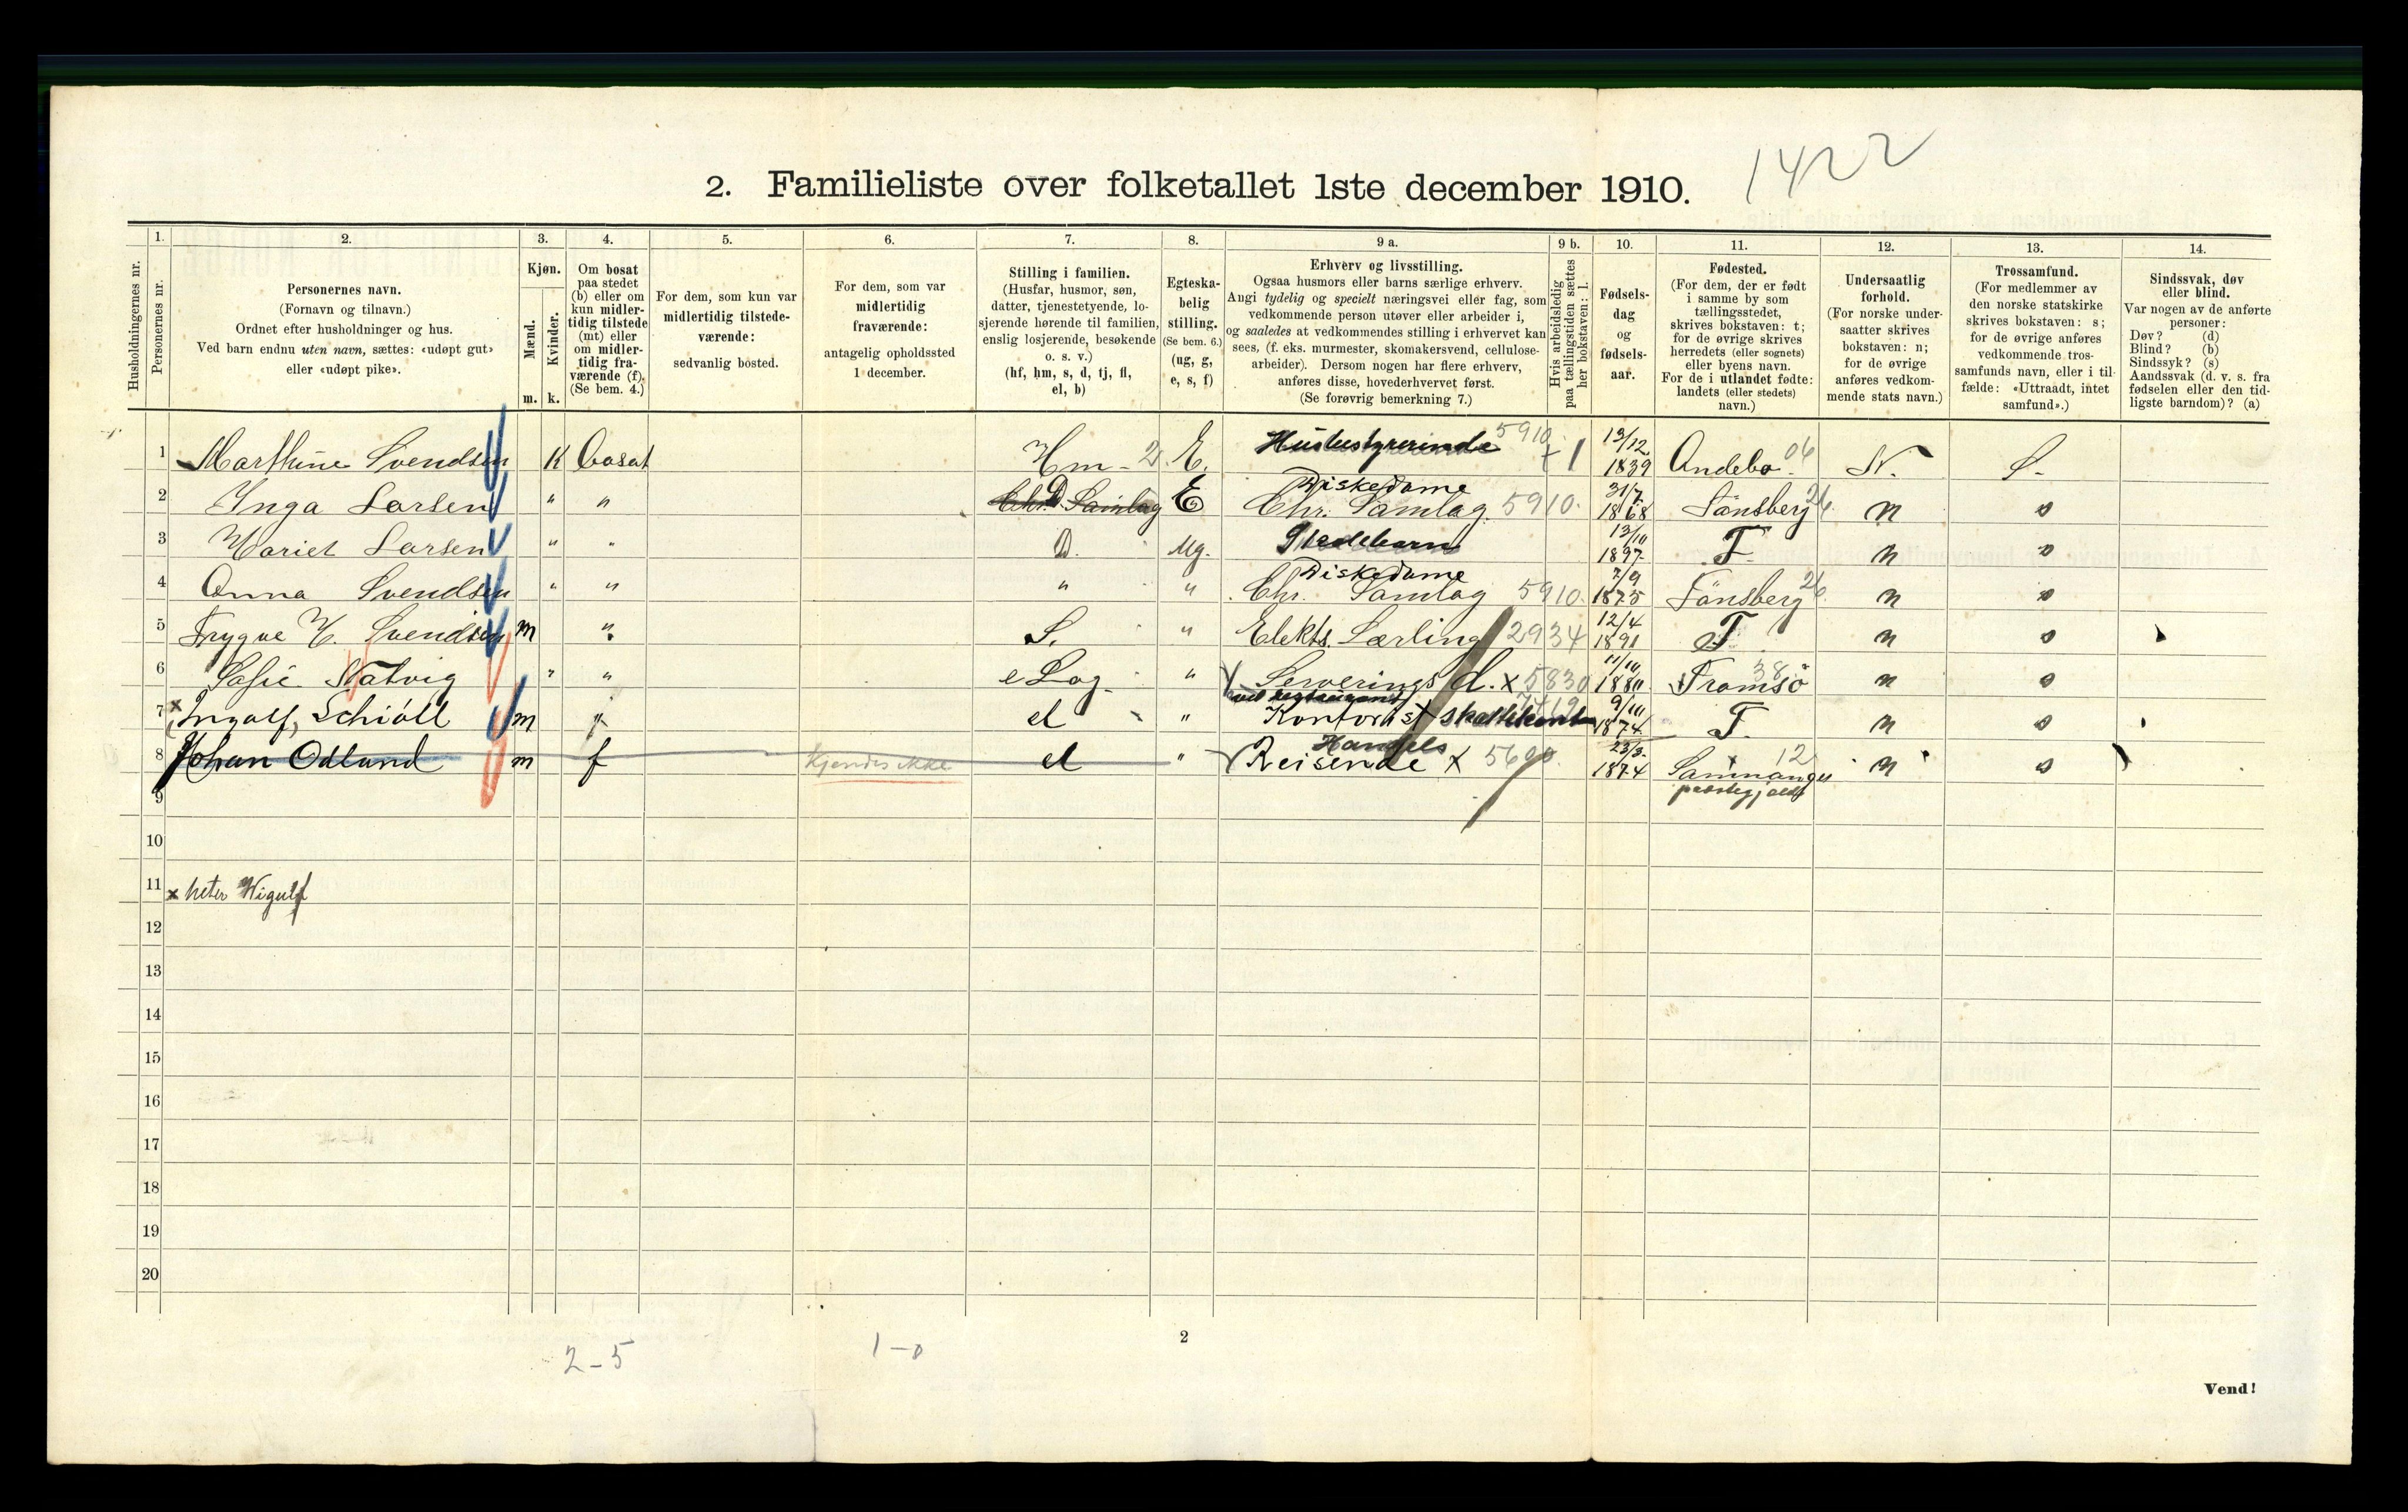 2. Familieliste over folketallet 1ste december 1910.
1422
Husholdningernes nr.
1.
Personernes nr.
2.
Personernes navn.
(Fornavn og tilnavn.)
Ordnet efter husholdninger og hus.
Ved barn endnu uten navn, sættes: «udøpt gut»
eller «udøpt pike».
3.
Kjøn.
Mænd.
Kvinder.
m. k.
4.
Om bosat
paa stedet
(b) eller om
kun midler-
tidig tilstede
(mt) eller
om midler-
tidig fra-
værende (f).
(Se bem. 4.)
5.
For dem, som kun var
midlertidig tilstede-
værende:
sedvanlig bosted.
6.
For dem, som var
midlertidig
fraværende:
antagelig opholdssted
1 december.
7.
Stilling i familien.
(Husfar, husmor, søn,
datter, tjenestetyende, lo-
sjerende hørende til familien,
enslig losjerende, besøkende
o. s. v.)
(hf, hm, s, d, tj, fl,
el, b)
8.
Egteska-
belig
stilling.
(Se bem. 6.)
(ug, g,
e, s, f)
9 a.
Erhverv og livsstilling.
Ogsaa husmors eller barns særlige erhverv.
Angi tydelig og specielt næringsvei eller fag, som
vedkommende person utøver eller arbeider i,
og saaledes at vedkommendes stilling i erhvervet kan
sees, (f. eks. murmester, skomakersvend, cellulose-
arbeider). Dersom nogen har flere erhverv,
anføres disse, hovederhvervet først.
(Se forøvrig bemerkning 7.)
9 b.
Hvis arbeidsledig
paa tællingstiden sættes
her bokstaven: l.
10.
Fødsels-
dag
og
fødsels-
aar.
11.
Fødested.
(For dem, der er født
i samme by som
tællingsstedet,
skrives bokstaven: t;
for de øvrige skrives
herredets (eller sognets)
eller byens navn.
For de i utlandet fødte:
landets (eller stedets)
navn.)
12.
Undersaatlig
forhold.
(For norske under-
saatter skrives
bokstaven: n;
for de øvrige
anføres vedkom-
mende stats navn.)
13.
Trossamfund.
(For medlemmer av
den norske statskirke
skrives bokstaven: s;
for de øvrige anføres
vedkommende tros-
samfunds navn, eller i til-
fælde: «Uttraadt, intet
samfund».)
14.
Sindssvak, døv
eller blind.
Var nogen av de anførte
personer:
Døv? (d)
Blind? (b)
Sindssyk? (s)
Aandssvak (d. v. s. fra
fødselen eller den tid-
ligste barndom)? (a)
1 Marthine Svendsen K bosat Hm - 2 E. Husbestyrerinde 5910 + 1 13/12 1839 Andebo 06 N. S.
2 Inga Larsen " " Chr. Samlag D E Diskedame Chr. Samlag 5910. 31/7 1868 Tønsberg 26 n s
3 Hariet Larsen " " D. Ug. Skolebarn 13/10 1897 T n s
4 Anna Svendsen " " " " Diskedame Chr. Samlag 5910. 7/9 1875 Tønsberg 26. n s
5 Trygve H. Svendsen m " S. " Elektr. Lærling 2934 12/4 1891 T n s
6 Sofie Natvig " " e Log. " Serverings d. x 5830 11/10 1880 Tromsö 38 n s
ved restaurant
7 x Ingolf, Schiöll m " el " Kontorist skattekont 9/10 1874 T. n s
8 Johan Odlund m f Kjendes ikke el " Handels Reisende x 5690. 23/3 1874 Samnanger 12 n s
præstegjæld
9
10
11 x heter Wigulf
12
13
14
15
16
17
18
19
20
2 - 5
1 - 0
2
Vend!